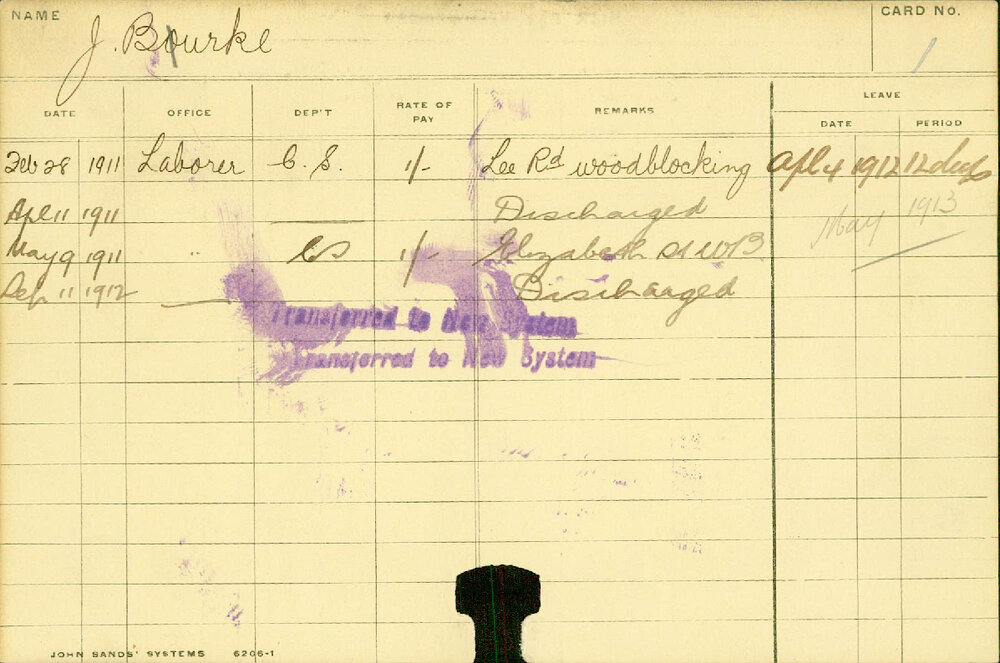 NAME J. Bourke CARD No. 1
DATE OFFICE DEP'T RATE OF PAY REMARKS LEAVE
DATE PERIOD
Feb 28 1911 Laborer C. S. 1/- Lee Rd woodblocking Apl 4 1912 12 days
Apl 11 1911 Discharged May 1913
May 9 1911 " CS 1/- Elizabeth St WB
Sep 11 1912 Discharged
Transferred to New System
Transferred to New System
JOHN SANDS' SYSTEMS 6206-1